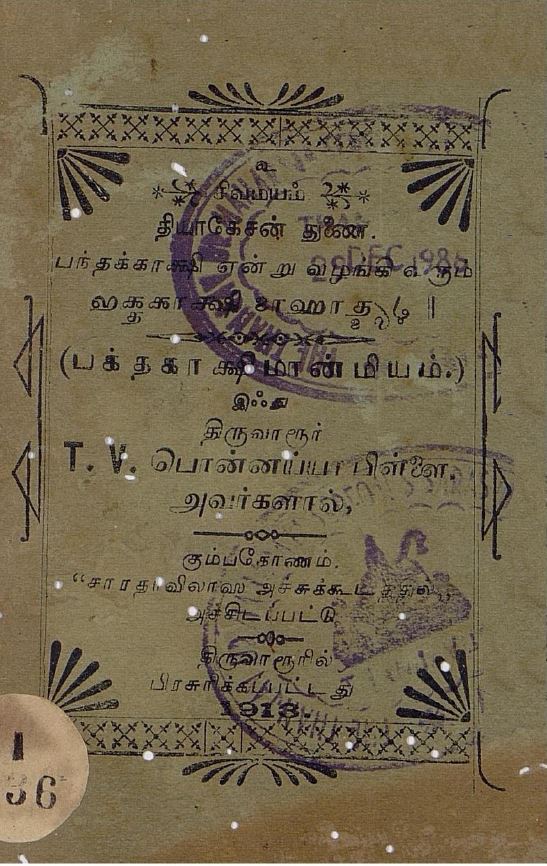 உ
சிவமயம்
தியாகேசன் துணை.
பந்தக்காக்ஷி என்று வழங்கிஎரும்
(பக்தகாக்ஷிமான்மியம்.)
இஃது
திருவாரூர்
T. V. பொன்னய்யா பிள்ளை,
அவர்களால்,
கும்பகோணம்.
"சாரதாவிலாஸ அச்சுக்கூடத்தில்,
அச்சிடப்பட்டு
திருவாரூரில்
பிரசுரிக்கப்பட்டது
1913.
DEC 1985
1
36